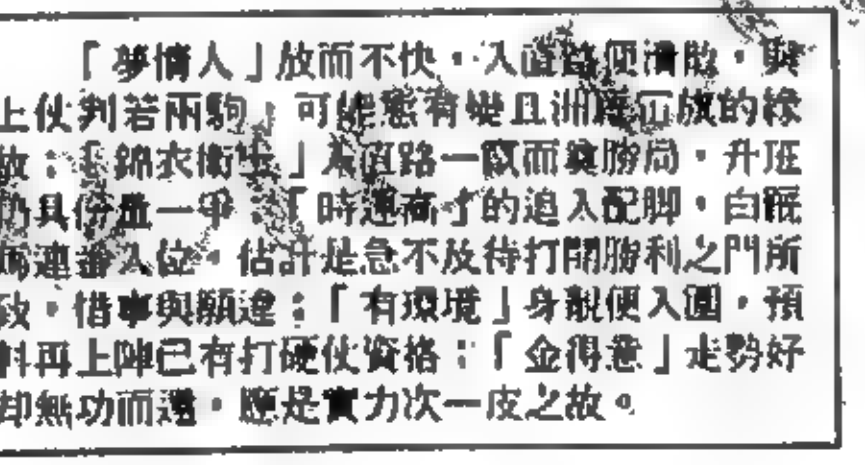 「夢情人」放而不快，入直路便潰敗，與
上仗判若兩駒，可能態有變且 放的緣
故；「錦衣衛 」入直路一 而 勝局，升班
仍具份量一爭；「時運高 的追入配脚，白 
馬連番入位，估計是急不及待打開勝利之門所
致，惜事與願違；「有環境」身靚便入圍，預
料再上陣已有打硬仗資格；「金得意」走勢好
却無功而還，應是實力次一皮之故。